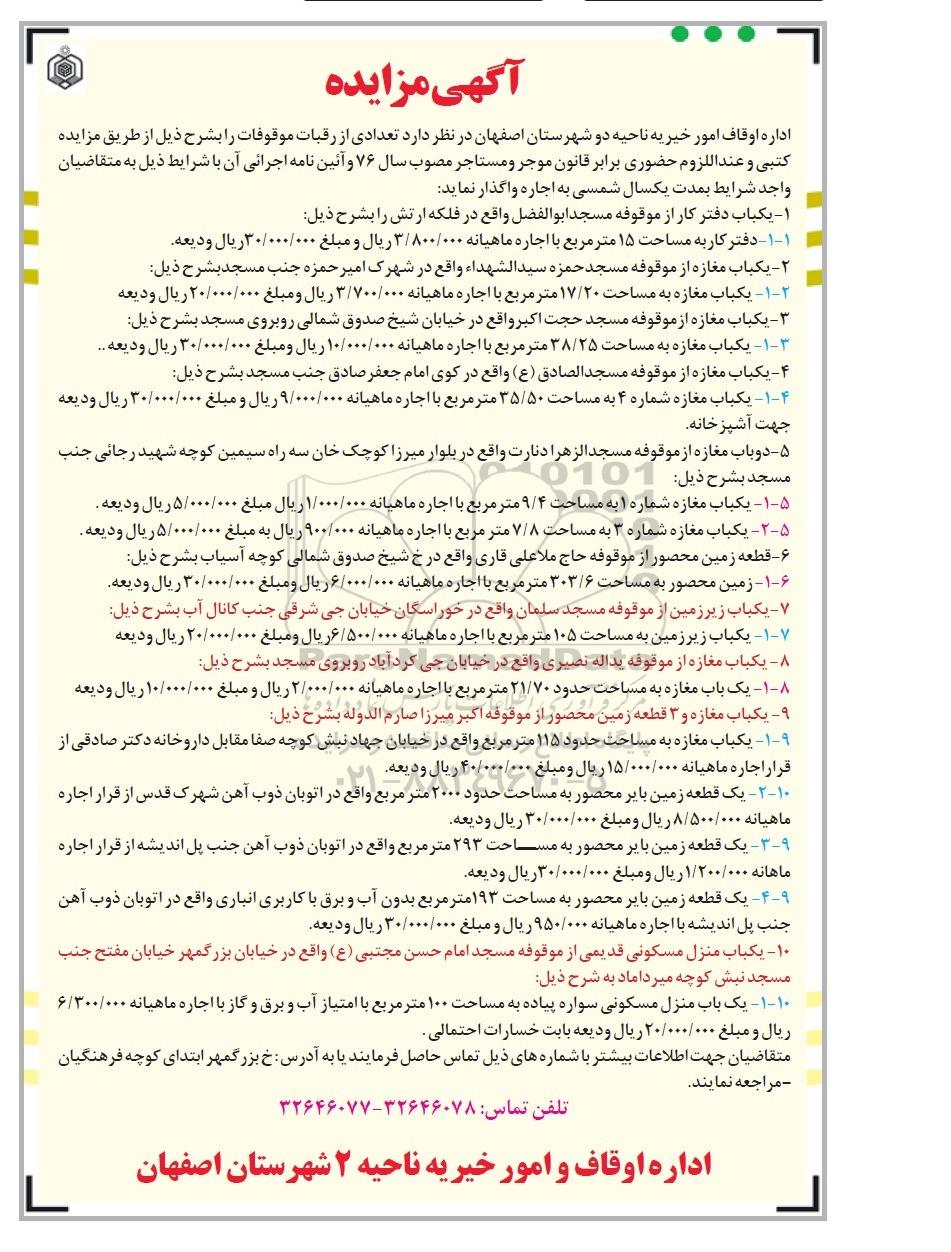 آگهی مزایده
اداره اوقاف امور خیریه ناحیه دو شهرستان اصفهان در نظر دارد تعدادی از رقبات موقوفات را بشرح ذیل از طریق مزایده
کتبی و عنداللزوم حضوری برابر قانون موجر ومستاجر مصوب سال ۷۶ وآئین نامه اجرائی آن با شرایط ذیل به متقاضیان
واجد شرایط بمدت یکسال شمسی به اجاره واگذار نماید:
۱-یکباب دفتر کار از موقوفه مسجدابوالفضل واقع در فلکه ارتش را بشرح ذیل:
۱-۱-دفتر کاربه مساحت ۱۵ مترمربع با اجاره ماهیانه ۳/۸۰۰/۰۰۰ ریال و مبلغ ۳۰/۰۰۰/۰۰۰ریال ودیعه.
۲-یکباب مغازه از موقوفه مسجدحمزه سیدالشهداء واقع در شهرک امیرحمزه جنب مسجدبشرح ذیل:
۲-۱- یکباب مغازه به مساحت ۱۷/۲۰مترمربع با اجاره ماهیانه ۳/۷۰۰/۰۰۰ ریال ومبلغ ۲۰/۰۰۰/۰۰۰ ریال ودیعه
۳-یکباب مغازه ازموقوفه مسجد حجت اکبرواقع در خیابان شیخ صدوق شمالی روبروی مسجد بشرح ذیل:
۳-۱- یکباب مغازه به مساحت ۳۸/۲۵ مترمربع با اجاره ماهیانه ۱۰/۰۰۰/۰۰۰ ریال ومبلغ ۳۰/۰۰۰/۰۰۰ ریال ودیعه ..
۴-یکباب مغازه از موقوفه مسجدالصادق (ع) واقع در کوی امام جعفرصادق جنب مسجد بشرح ذیل:
۴-۱- یکباب مغازه شماره ۴ به مساحت ۳۵/۵۰ مترمربع با اجاره ماهیانه ۹/۰۰۰/۰۰۰ ریال و مبلغ ۳۰/۰۰۰/۰۰۰ ریال ودیعه
جهت آشپزخانه.
۵-دوباب مغازه ازموقوفه مسجدالزهرا دنارت واقع در بلوار میرزا کوچک خان سه راه سیمین کوچه شهید رجائی جنب
مسجد بشرح ذیل:
۵-۱- یکباب مغازه شماره ۱به مساحت ۹/۴مترمربع با اجاره ماهیانه ۱/۰۰۰/۰۰۰ریال مبلغ ۵/۰۰۰/۰۰۰ ریال ودیعه .
۵-۲- یکباب مغازه شماره ۳ به مساحت ۷/۸ متر مربع با اجاره ماهیانه ۹۰۰/۰۰۰ریال به مبلغ ۵/۰۰۰/۰۰۰ ریال ودیعه .
۶-قطعه زمین محصور از موقوفه حاج ملاعلی قاری واقع در خ شیخ صدوق شمالی کوچه آسیاب بشرح ذیل:
۶-۱-زمین محصور به مساحت ۳۰۳/۶ مترمربع با اجاره ماهیانه ۶/۰۰۰/۰۰۰ریال ومبلغ ۳۰/۰۰۰/۰۰۰ ریال ودیعه.
۷-یکباب زیرزمین از موقوفه مسجد سلمان واقع در خوراسگان خیابان جی شرقی جنب کانال آب بشرح ذیل:
۷-۱- یکباب زیرزمین به مساحت ۱۰۵ مترمربع با اجاره ماهیانه ۶/۵۰۰/۰۰۰ریال ومبلغ ۲۰/۰۰۰/۰۰۰ ریال ودیعه
۸- یکباب مغازه از موقوفه یداله نصیری واقع در خیابان جی کردآباد روبروی مسجد بشرح ذیل:
۸-۱- یک باب مغازه به مساحت حدود ۲۱/۷۰مترمربع با اجاره ماهیانه ۲/۰۰۰/۰۰۰ریال و مبلغ ۱۰/۰۰۰/۰۰۰ ریال ودیعه
۹- یکباب مغازه و ۳ قطعه زمین محصور از موقوفه اکبر میرزا صارم الدوله بشرح ذیل:
۹-۱- یکباب مغازه به مساحت حدود ۱۱۵ مترمربع واقع در خیابان جهاد نبش کوچه صفا مقابل داروخانه دکتر صادقی از
قراراجاره ماهیانه ۱۵/۰۰۰/۰۰۰ریال ومبلغ ۴۰/۰۰۰/۰۰۰ ریال ودیعه.
۱۰-۲- یک قطعه زمین بایر محصور به مساحت حدود ۲۰۰۰متر مربع واقع در اتوبان ذوب آهن شهرک قدس از قرار اجاره
ماهیانه ۸/۵۰۰/۰۰۰ ریال ومبلغ ۳۰/۰۰۰/۰۰۰ ریال ودیعه.
۹-۳- یک قطعه زمین بایر محصور به مســـاحت ۲۹۳ مترمربع واقع در اتوبان ذوب آهن جنب پل اندیشه از قرار اجاره
ماهانه ۱/۲۰۰/۰۰۰ ریال ومبلغ ۳۰/۰۰۰/۰۰۰ریال ودیعه.
۹-۴- یک قطعه زمین بایر محصور به مساحت ۱۹۳مترمربع بدون آب و برق با کاربری انباری واقع در اتوبان ذوب آهن
جنب پل اندیشه با اجاره ماهیانه ۹۵۰/۰۰۰ ریال و مبلغ ۳۰/۰۰۰/۰۰۰ ریال ودیعه.
۱۰- یکباب منزل مسکونی قدیمی از موقوفه مسجد امام حسن مجتبی (ع) واقع در خیابان بزرگمهر خیابان مفتح جنب
مسجد نبش کوچه میرداماد به شرح ذیل:
۱۰-۱- یک باب منزل مسکونی سواره پیاده به مساحت ۱۰۰ مترمربع با امتیاز آب و برق و گاز با اجاره ماهیانه ۶/۳۰۰/۰۰۰
ریال و مبلغ ۲۰/۰۰۰/۰۰۰ ریال ودیعه بابت خسارات احتمالی .
متقاضیان جهت اطلاعات بیشتر با شماره های ذیل تماس حاصل فرمایند یا به آدرس: خ بزرگمهر ابتدای کوچه فرهنگیان
-مراجعه نمایند.
تلفن تماس: ۳۲۶۴۶۰۷۸-۳۲۶۴۶۰۷۷
اداره اوقاف و امور خیریه ناحیه ۲ شهرستان اصفهان
ParsNamadData
۰۲۱-۸۸۳۴۹۶۷۰-۵